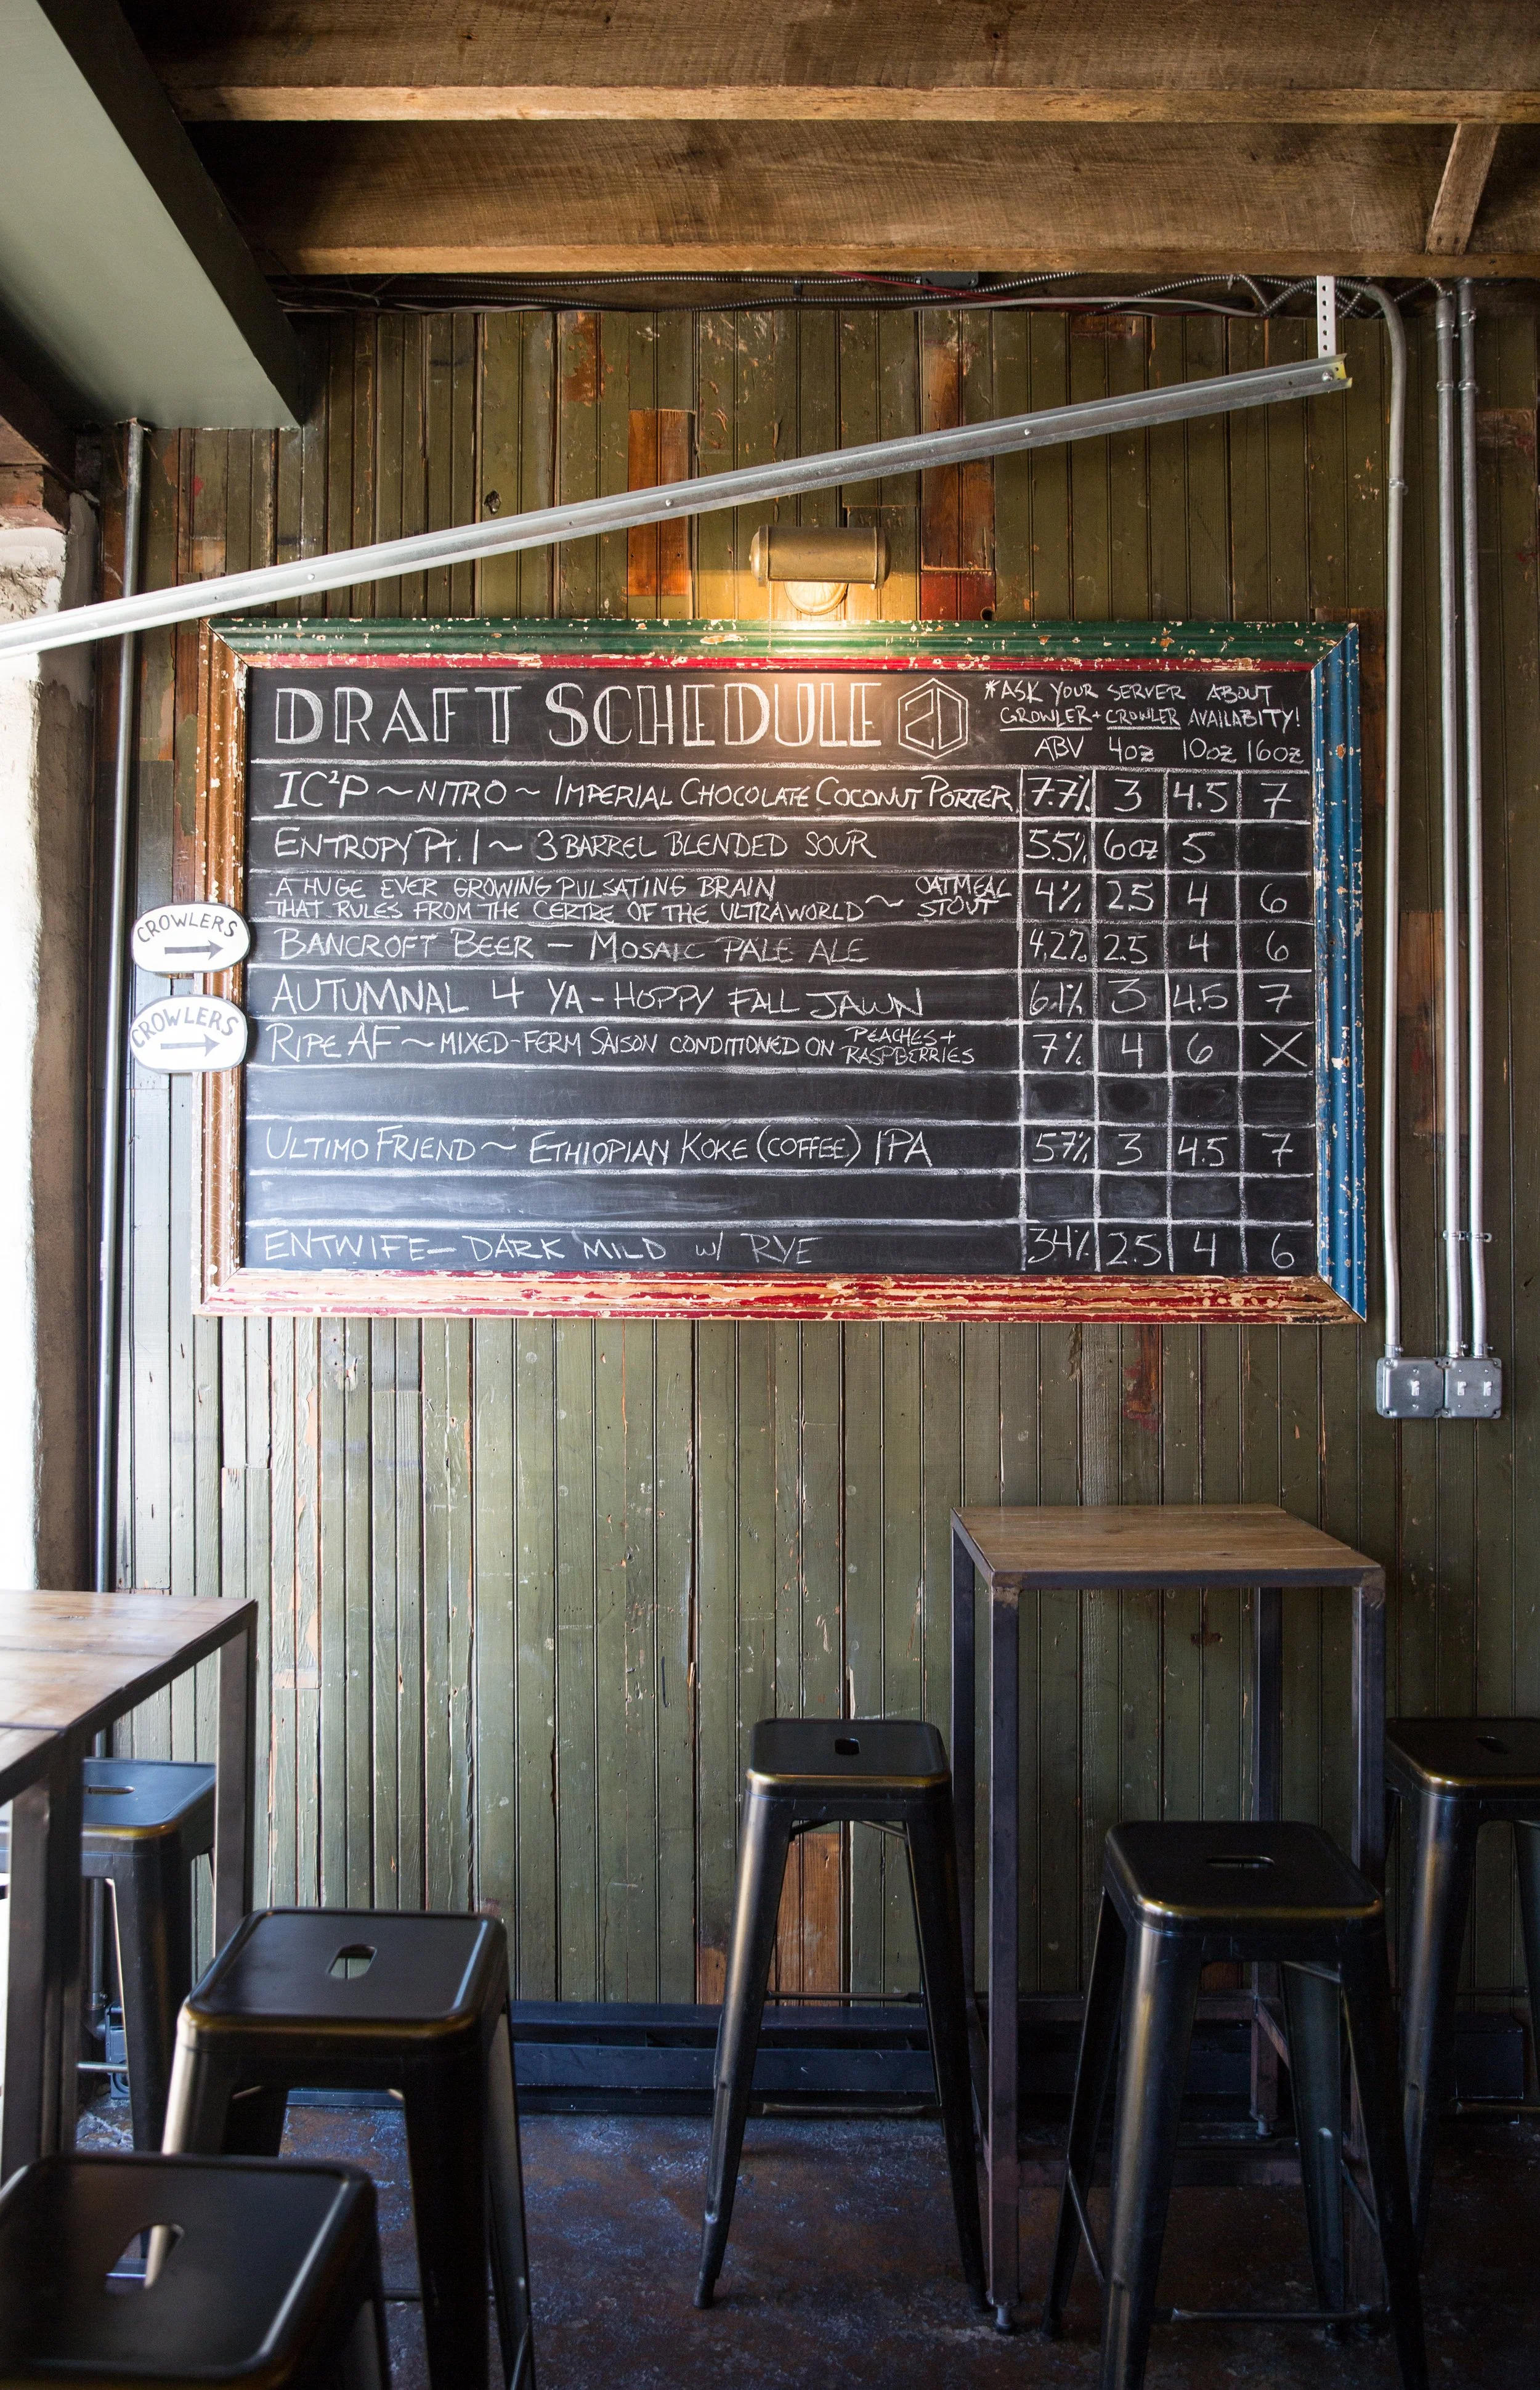 DRAFT SCHEDULE 2D
*ASK YOUR SERVER ABOUT
GROWLER + CROWLER AVAILABITY!
ABV 4oz 10oz 16oz
IC²P ~ NITRO ~ IMPERIAL CHOCOLATE COCONUT PORTER 7.7% 3 4.5 7
ENTROPY Pt. 1 ~ 3 BARREL BLENDED SOUR 5.5% 6oz 5
A HUGE EVER GROWING PULSATING BRAIN
THAT RULES FROM THE CERTRE OF THE ULTRAWORLD ~ OATMEAL STOUT 4% 2.5 4 6
BANCROFT BEER - MOSAIC PALE ALE 4.2% 2.5 4 6
AUTUMNAL 4 YA - HOPPY FALL JAWN 6.1% 3 4.5 7
RIPE AF ~ MIXED-FERM SAISON CONDITIONED ON PEACHES + RASPBERRIES 7% 4 6 X
ULTIMO FRIEND ~ ETHIOPIAN KOKE (COFFEE) IPA 5.7% 3 4.5 7
ENTWIFE - DARK MILD w/ RYE 3.4% 2.5 4 6
CROWLERS
CROWLERS